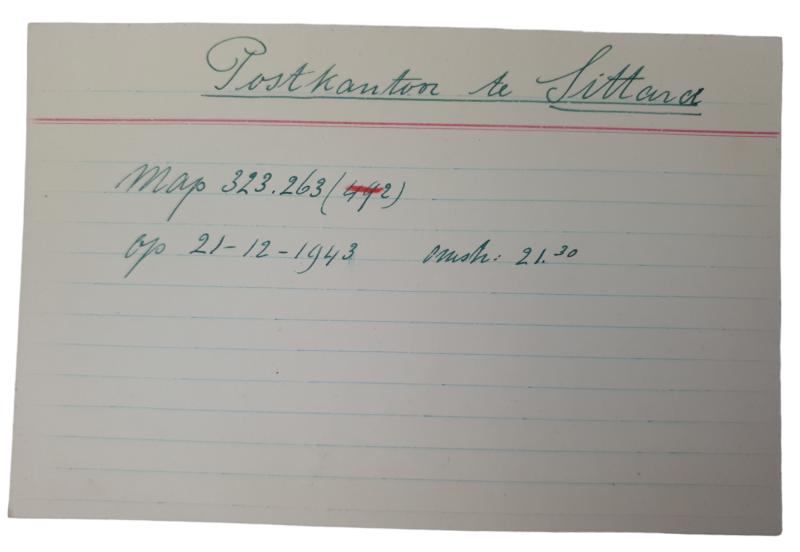 Postkantoor te Sittard
Map 323.263 (442)
op 21-12-1943 omstr: 21.30